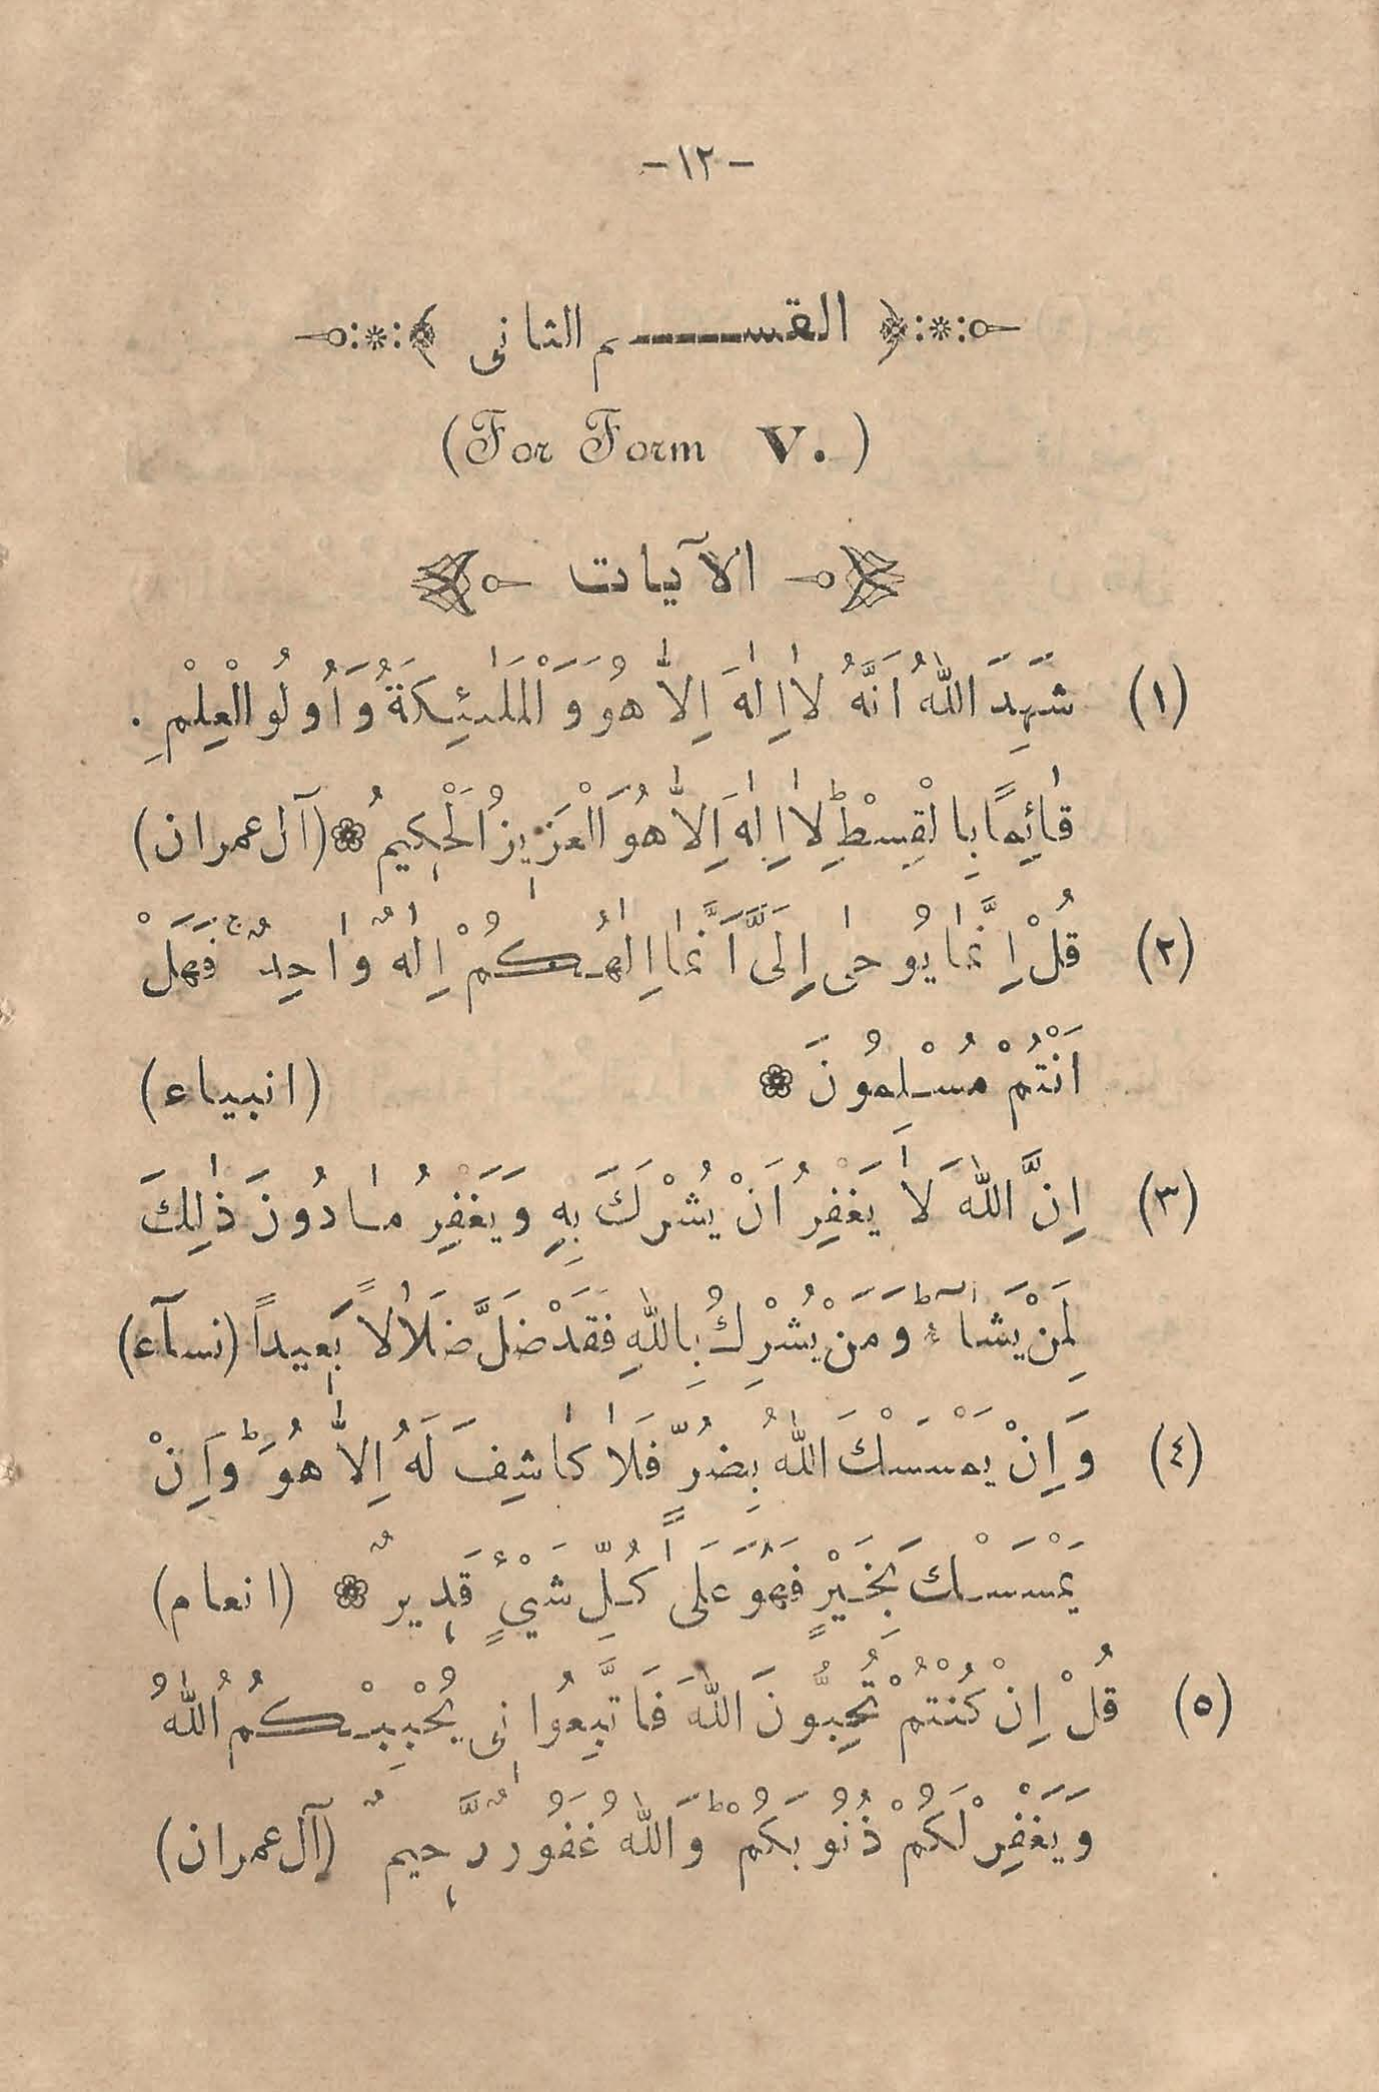 -١٢-
القســـــم الثانى
(For Form V.)
الآيات
(١) شَهِدَ اللّٰهُ اَنَّهُ لاٰاِلٰهَ اِلاّٰ هُوَ وَالْمَلٰئِكَةُ وَاُولُوالْعِلْمِ .
قاٰئِمًا بِالْقِسْطِ ؕ لاٰاِلٰهَ اِلاّٰ هُوَالْعَزِيزُالْحَكِيمُ ❁ (آل عمران)
(٢) قُلْ اِنَّمٰا يُوحىٰ اِلَىَّ اَنَّمٰااِلٰهُكُمْ اِلٰهٌ وٰاحِدٌ ۚ فَهَلْ
اَنْتُمْ مُسْلِمُونَ ❁ (انبياء)
(٣) اِنَّ اللّٰهَ لاٰ يَغْفِرُ اَنْ يُشْرَكَ بِهٖ وَيَغْفِرُ مٰادُونَ ذٰلِكَ
لِمَنْ يَشآٰءُ ؕ وَمَنْ يُشْرِكْ بِاللّٰهِ فَقَدْ ضَلَّ ضَلاٰلاً بَعِيداً (نسآء)
(٤) وَاِنْ يَمْسَسْكَ اللّٰهُ بِضُرٍّ فَلاٰ كاٰشِفَ لَهُ اِلاّٰ هُوَ ؕ وَاِنْ
يَمْسَسْكَ بِخَيْرٍ فَهُوَ عَلىٰ كُلِّ شَيْءٍ قَدٖيرٌ ❁ (انعام)
(٥) قُلْ اِنْ كُنْتُمْ تُحِبُّونَ اللّٰهَ فَاتَّبِعُوانِى يُحْبِبْكُمُ اللّٰهُ
وَيَغْفِرْلَكُمْ ذُنُوبَكُمْ ؕ وَاللّٰهُ غَفُورٌ رَّحٖيمٌ (آل عمران)